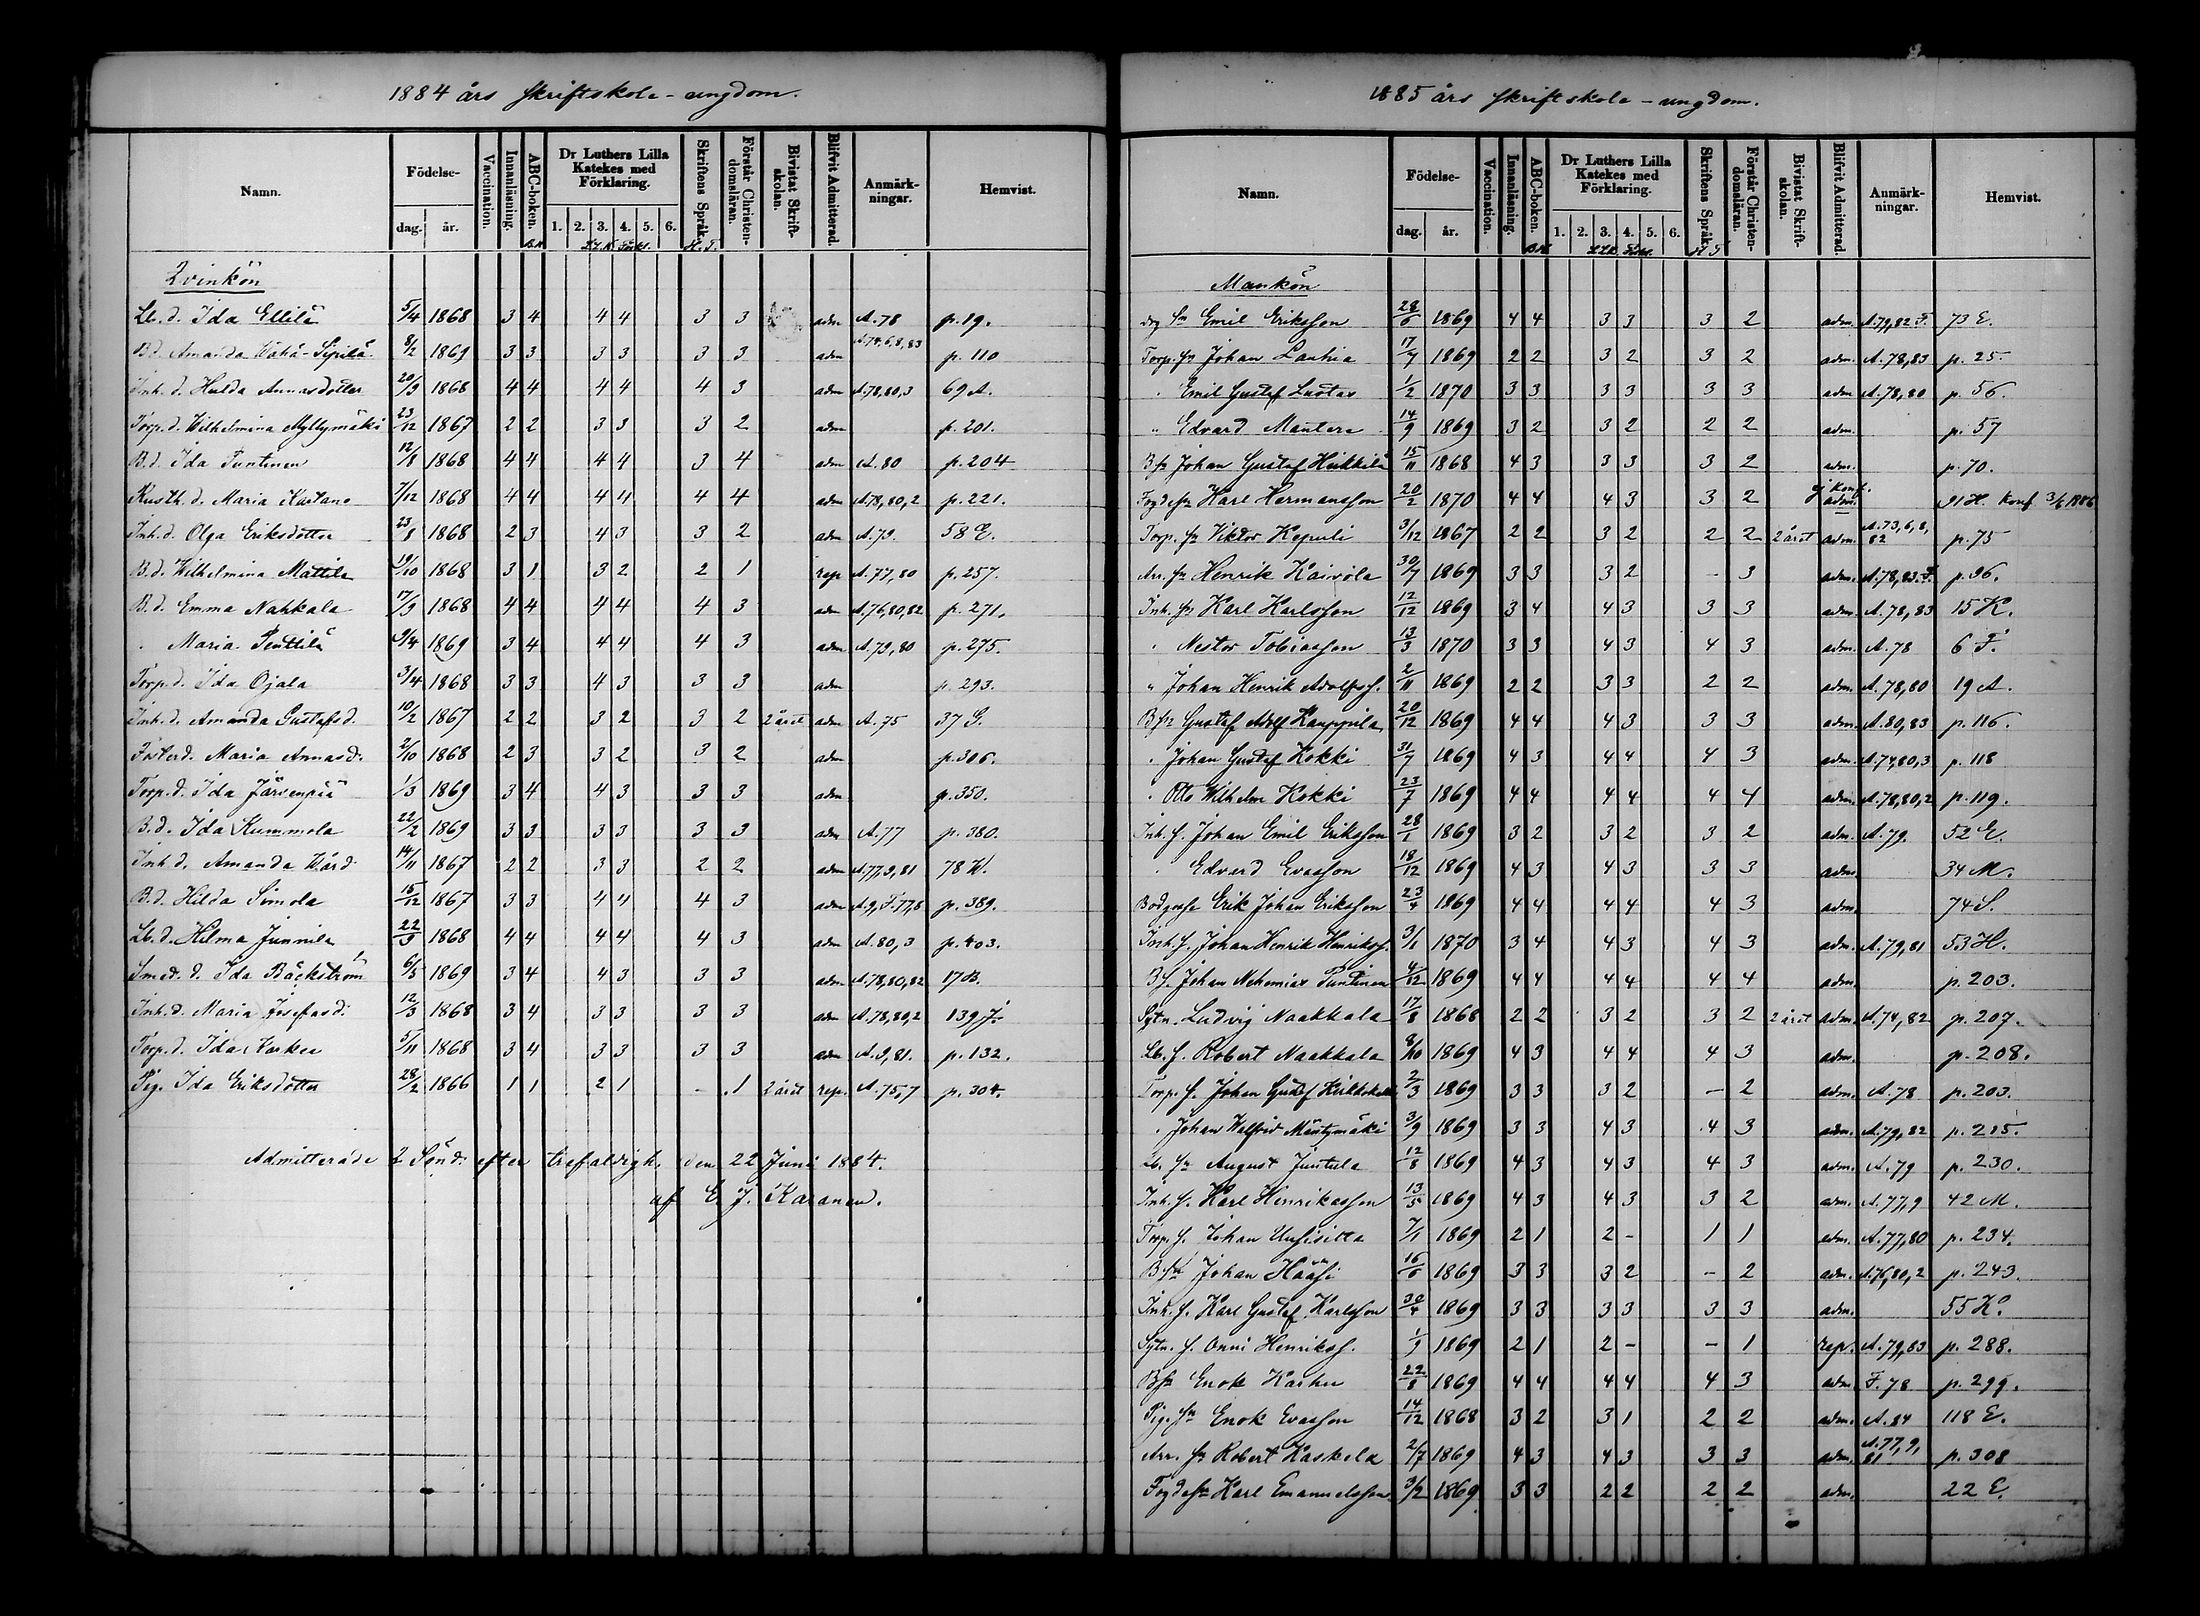 1884 års Skriftskole-ungdom.
Namn. Födelse- dag. år. Vaccination. Innanläsning. ABC-boken. Dr Luthers Lilla Katekes med Förklaring. 1. 2. 3. 4. 5. 6. Skriftens Språk. Förstår Christen-domsläran. Bivistat Skrift-skolan. Blifvit Admitterad. Anmärk-ningar. Hemvist.
Qvinkön
Lb. d. Ida Ellilä 5/4 1868 3 4 4 4 3 3 adm A. 78 p. 19.
B. d. Amanda Wähä-Sipilä 8/2 1869 3 3 3 3 3 3 adm A. 74, 6, 8, 83 p. 110
Inh. d. Hulda Annasdotter 20/9 1868 4 4 4 4 4 3 adm A. 78, 80, 3 69 A.
Torp. d. Wilhelmina Myllymäki 23/12 1867 2 2 3 3 3 2 adm p. 201.
B. d. Ida Tuntinen 12/8 1868 4 4 4 4 3 4 adm A. 80 p. 204
Kusth. d. Maria Kastane 7/12 1868 4 4 4 4 4 4 adm A. 78, 80, 2 p. 221.
Inh. d. Olga Eriksdotter 23/8 1868 2 3 4 3 3 2 adm A. 79. 58 E.
B. d. Wilhelmina Mattila 19/10 1868 3 1 3 2 2 1 rep A. 77, 80 p. 257.
B. d. Emma Nahkala 17/9 1868 4 4 4 4 4 3 adm A. 76, 80, 82 p. 271.
" Maria Penttilä 9/4 1869 3 4 4 4 4 3 adm A. 79, 80 p. 275.
Torp. d. Ida Ojala 3/4 1868 3 3 4 3 3 3 adm p. 293.
Inh. d. Amanda Gustafsd. 10/2 1867 2 2 3 2 3 2 2 året adm A. 75 37 G.
Fosterd. Maria Annasd. 2/10 1868 2 3 3 2 3 2 adm p. 306.
Torp. d. Ida Järvenpää 1/3 1869 3 4 4 3 3 3 adm p. 350.
B. d. Ida Kummola 22/2 1869 3 3 3 3 3 3 adm A. 77 p. 380.
Inh. d. Amanda Wärd 14/11 1867 2 2 3 3 2 2 adm A. 77, 9, 81 78 W.
B. d. Hilda Simola 15/12 1867 3 3 4 4 4 3 adm A. 9, F. 77, 8 p. 389.
Lb. d. Hilma Junnila 22/3 1868 4 4 4 4 4 3 adm A. 80, 3 p. 403.
Smed. d. Ida Bäckström 6/5 1869 3 4 4 3 3 3 adm A. 78, 80, 82 17 B.
Inh. d. Maria Josefasd. 12/3 1868 3 4 3 3 3 3 adm A. 78, 80, 2 139 J.
Torp. d. Ida Karhu 5/11 1868 3 4 3 3 3 3 adm A. 9, 81. p. 132.
Pig. Ida Eriksdotter 28/2 1866 1 1 2 1 - 1 2 året rep. A. 75, 7 p. 304.
Admitterade 2 Sönd. efter trefaldigh. den 22 Juni 1884.
af E. J. Karanen.
1885 års Skriftskole-ungdom.
Namn. Födelse- dag. år. Vaccination. Innanläsning. ABC-boken. Dr Luthers Lilla Katekes med Förklaring. 1. 2. 3. 4. 5. 6. Skriftens Språk. Förstår Christen-domsläran. Bivistat Skrift-skolan. Blifvit Admitterad. Anmärk-ningar. Hemvist.
Mankön
drg sn Emil Eriksson 28/6 1869 4 4 3 3 3 2 adm. A. 79, 82 F. 73 E.
Torp. sn Johan Lauhia 17/7 1869 2 2 3 2 3 2 adm. A. 78, 83 p. 25.
" Emil Gustaf Lastas 1/2 1870 3 3 3 3 3 3 adm A. 78, 80 p. 56.
" Edvard Mantere 14/9 1869 3 2 3 2 2 2 adm. p. 57
B sn Johan Gustaf Heikkilä 15/11 1868 4 3 3 3 3 2 adm. p. 70.
Fogdesn Karl Hermansson 20/2 1870 4 4 4 3 3 2 ej konf. adm. 91 H. Konf 3/6 1886
Torp. sn Viktor Kepuli 31/12 1867 2 2 3 2 2 2 2 året adm. A. 73, 6, 8, 82 p. 75
Arr. sn Henrik Kaivola 30/7 1869 3 3 3 2 - 3 adm. A. 78, 83. F. p. 96.
Inh. sn Karl Karlsson 12/12 1869 3 4 4 3 3 3 adm. A. 78, 83 15 K.
" Nestor Tobiasson 13/3 1870 3 3 4 3 4 3 adm. A. 78 6 F.
" Johan Henrik Adolfss. 2/11 1869 2 2 3 3 2 2 adm. A. 78, 80 19 A.
B sn Gustaf Adolf Kauppila 20/12 1869 4 4 4 3 3 3 adm. A. 80, 83 p. 116.
" Johan Gustaf Kokki 31/7 1869 4 3 4 4 4 3 adm. A. 74, 80, 3 p. 118
" Otto Wilhelm Kokki 23/7 1869 4 4 4 4 4 4 adm. A. 78, 80, 2 p. 119.
Inh. s. Johan Emil Eriksson 28/1 1869 3 2 3 2 3 2 adm. A. 79. 52 E.
" Edvard Evasson 18/12 1869 4 3 4 3 3 3 adm. 34 M.
Bodgosse Erik Johan Eriksson 23/4 1869 4 4 4 4 4 3 adm. 74 S.
Inh. s. Johan Henrik Henrikss. 3/1 1870 3 4 4 3 4 3 adm. A. 79, 81 53 H.
B s. Johan Nehemias Tuntinen 4/12 1869 4 4 4 4 4 4 adm p. 203.
Sytn. Ludvig Naakkala 17/8 1868 2 2 3 2 3 2 2 året adm. A. 74, 82 p. 207.
Lb. s. Robert Naakkala 8/10 1869 4 3 4 4 4 3 adm. p. 208.
Torp. s. Johan Gustaf 2/3 1869 3 3 3 2 - 2 adm. A. 78 p. 203.
" Johan Walfrid Mäntymäki 3/9 1869 3 3 4 3 4 3 adm. A. 79, 82 p. 215.
Lb. sn August Juntula 12/8 1869 4 3 4 3 4 3 adm. A. 79 p. 230.
Inh. s. Karl Henrikasson 13/5 1869 4 3 4 3 3 2 adm. A. 77, 9 42 M.
Torp. s. Johan Uusisilta 7/1 1869 2 1 2 - 1 1 adm. A. 77, 80 p. 234.
B. sn Johan Hääsi 16/6 1869 3 3 3 2 - 2 adm. A. 76, 80, 2 p. 243.
Inh. s. Karl Gustaf Karlsson 30/4 1869 3 3 3 3 3 3 adm. 55 K.
Sytn. s. Onni Henrikss. 1/9 1869 2 1 2 - - 1 rep. A. 79, 83 p. 288.
B sn Enok Karhu 22/8 1869 4 4 4 4 4 3 adm F. 78 p. 299.
Pig. sn Enok Evasson 14/12 1868 3 2 3 1 2 2 adm. A. 84 118 E.
Arr. sn Robert Kaskela 2/7 1869 4 3 4 3 3 3 adm. A. 77, 9, 81 p. 308
Fogdesn Karl Emanuelsson 3/2 1869 3 3 2 2 2 2 adm. 22 E.